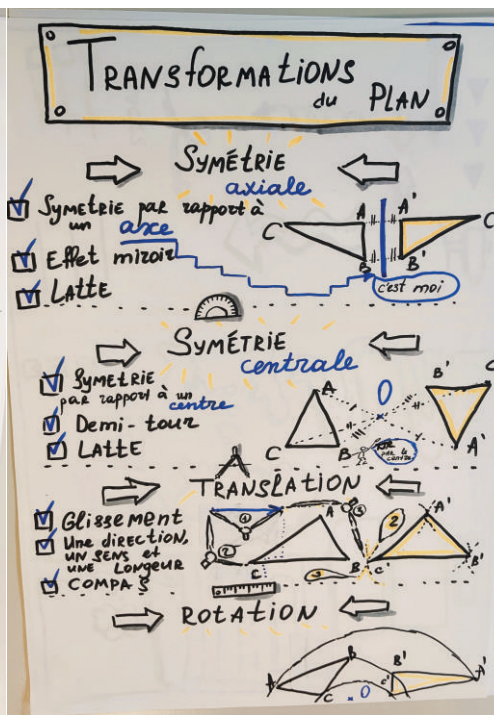 TRANSFORMATIONS
du PLAN
SYMÉTRIE
axiale
SYMETRIE par rapport à
un axe
Effet miroir
LATTE
A A'
C C'
B B'
c'est moi
SYMÉTRIE
centrale
SYMETRIE
par rapport à un
centre
Demi-tour
LATTE
A O B' C
C B A'
TRANSLATION
Glissement
Une direction,
UN SENS et
UNE LONGEUR
COMPAS
1 2 3 A 2 A'
C B C' B'
ROTATION
A B C O B' C' A'